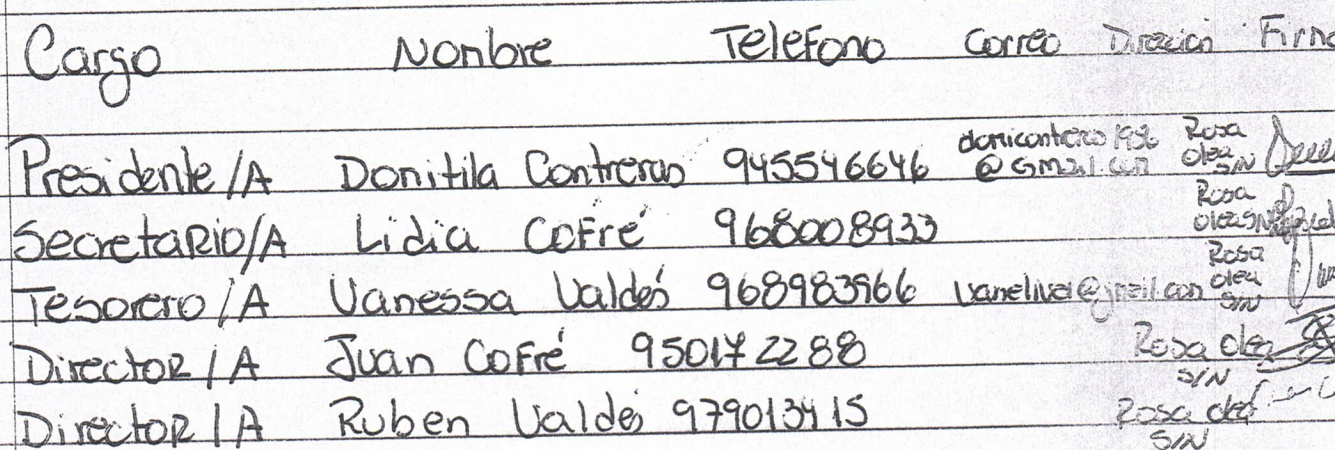 Cargo Nonbre Telefono Correo Direccion Firma
Presidente/A Donitila Contreras 945546646 @Gmail.com Rosa olea S/N
Secretario/A Lidia Cofré 968008933 Rosa olea S/N
Tesorero/A Vanessa Valdés 968983966 Rosa olea S/N
Director/A Juan Cofré 950172288 Rosa olea S/N
Director/A Ruben Valdés 979013415 Rosa olea S/N